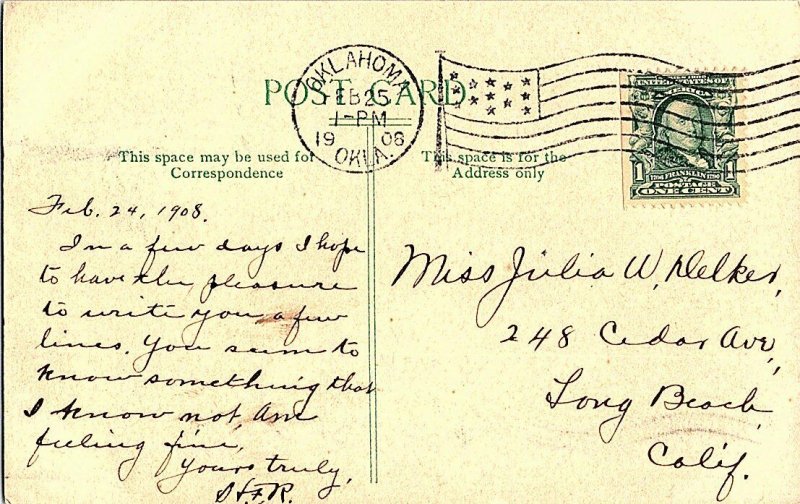 POST CARD
OKLAHOMA
FEB 25
1-PM
1908
OKLA.
UNITED STATES OF
AMERICA
1 FRANKLIN 1
POSTAGE
ONE CENT
This space may be used for
Correspondence
This space is for the
Address only
Feb. 24, 1908.
In a few days I hope
to have the pleasure
to write you a few
lines. You seem to
know something that
I know not, Am
feeling fine,
Yours truly,
Miss Julia W. Welker,
248 Cedar Ave,
Long Beach,
Calif.